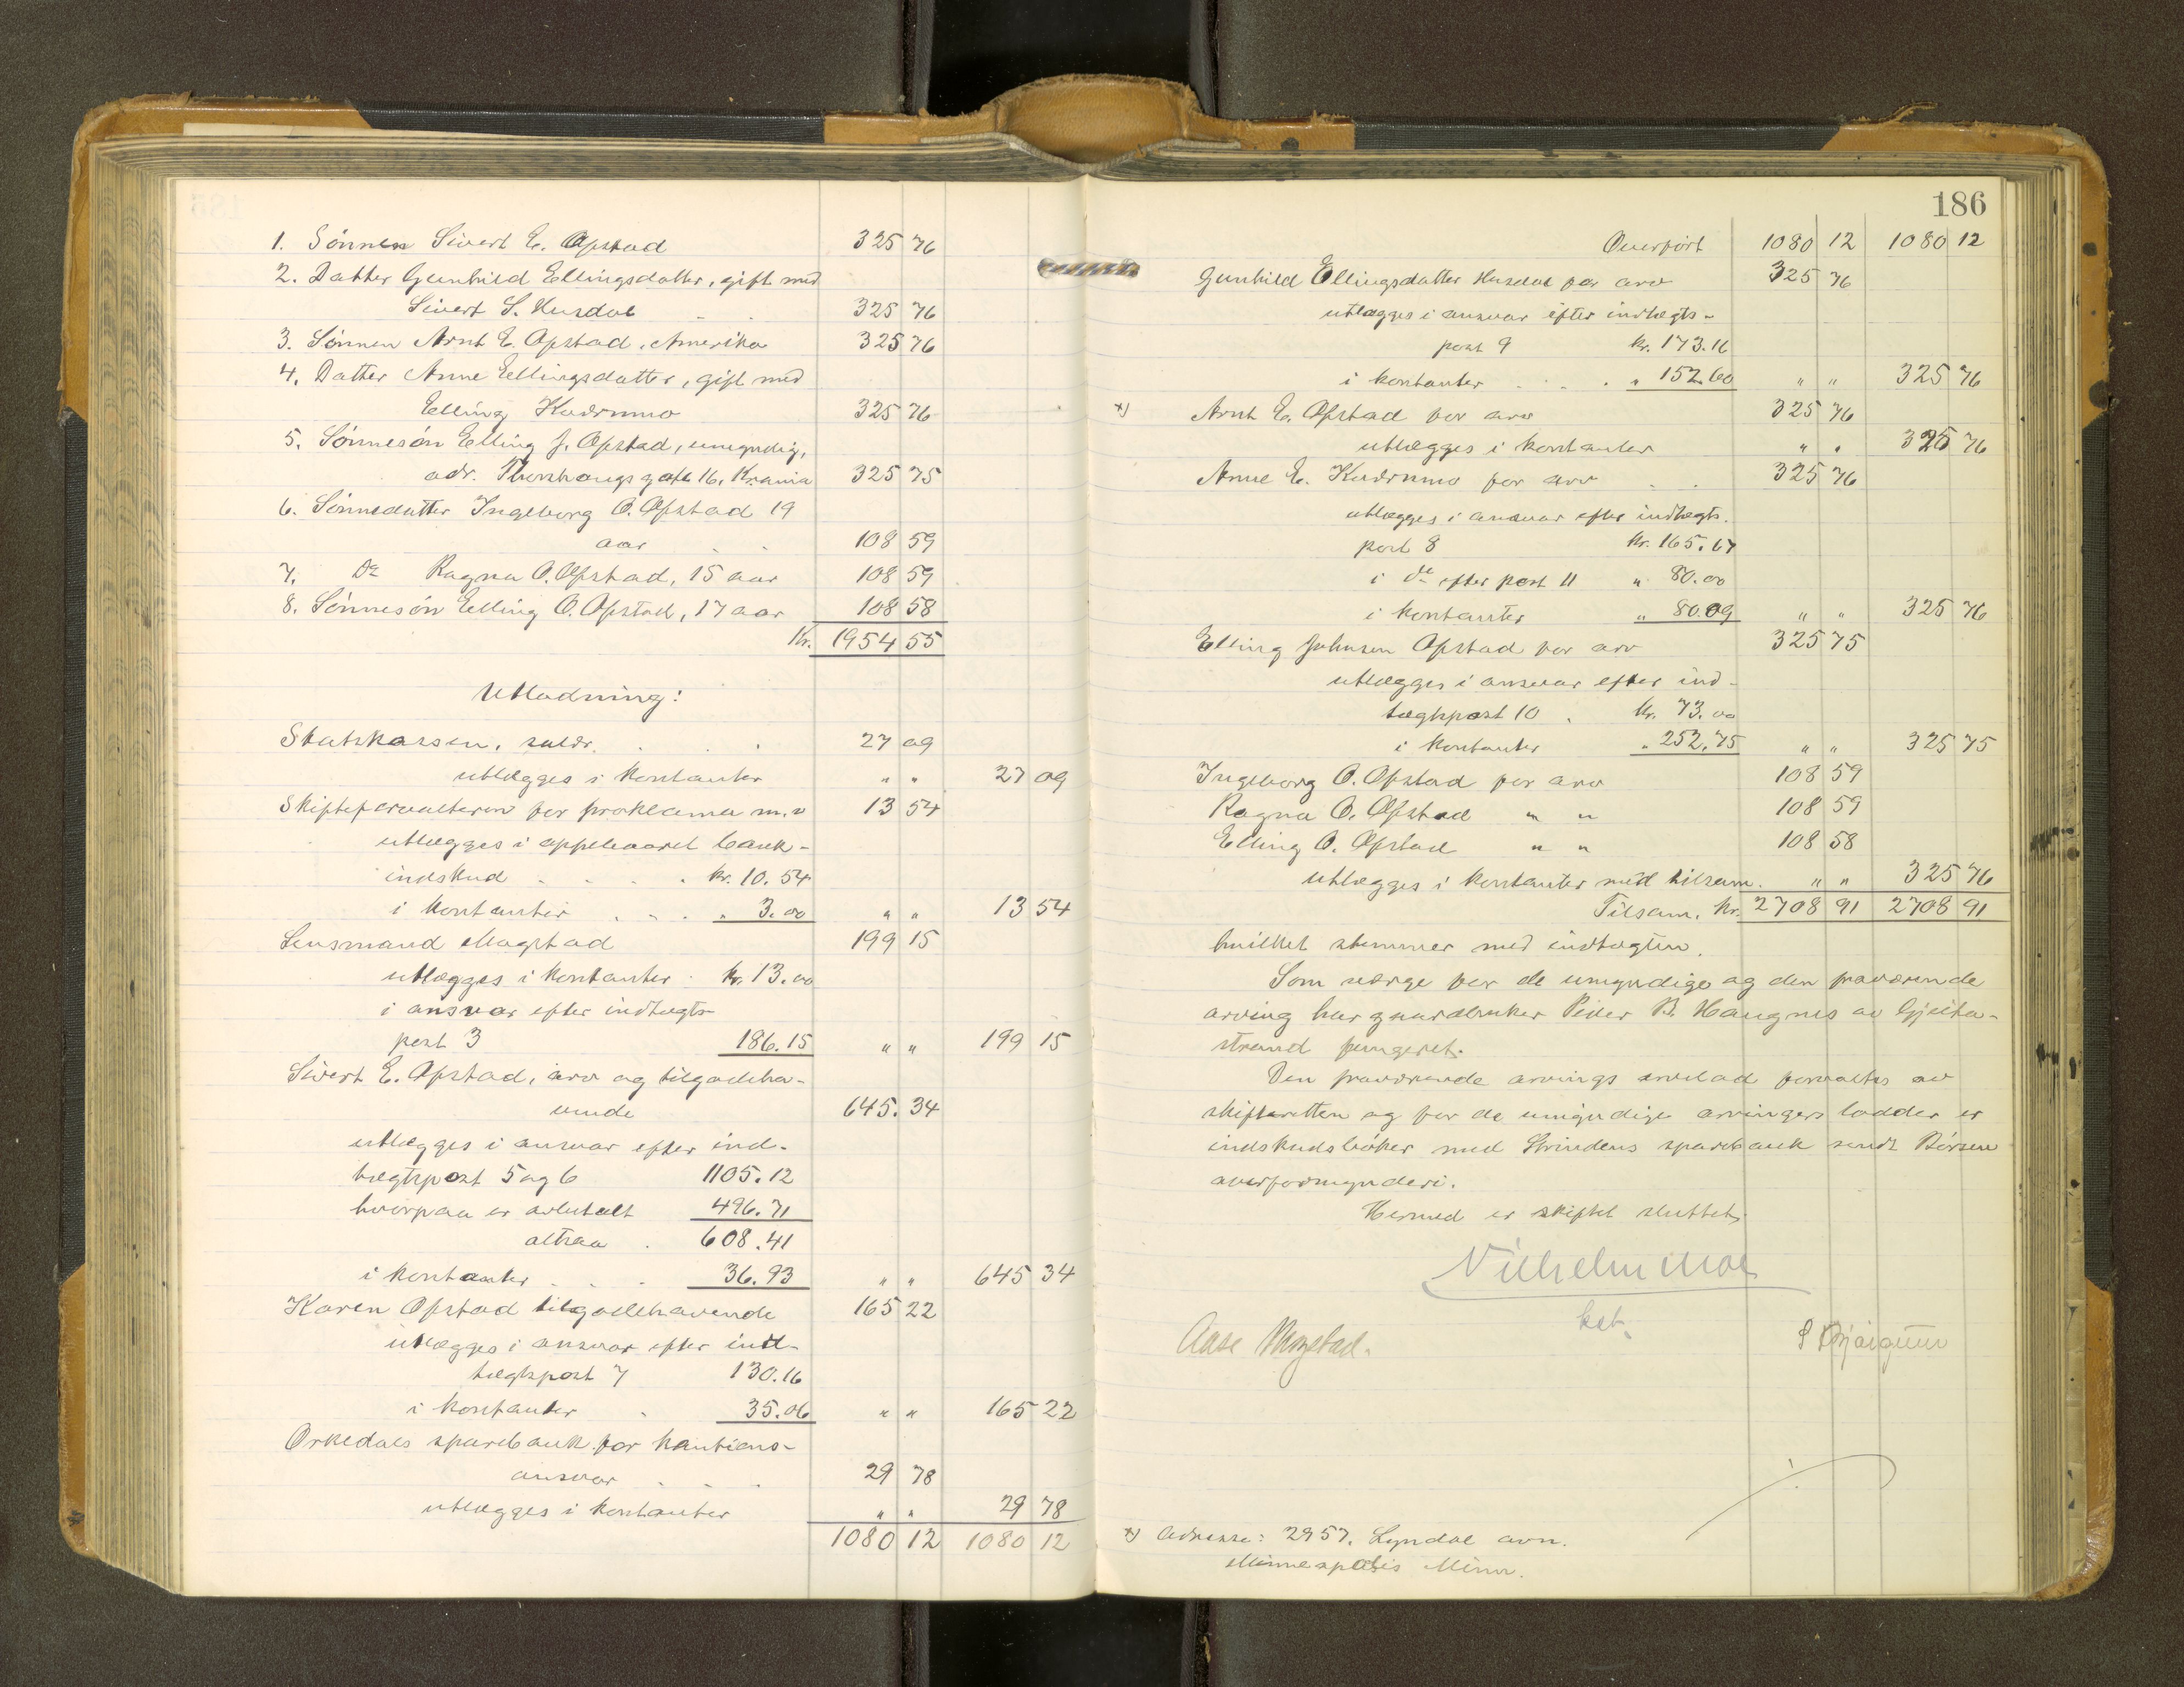 1. Sønnen Sivert E. Opstad 325 76
2. Datter Gunhild Ellingsdatter, gift med
Sivert S. Husdal 325 76
3. Sønnen Arnt E. Opstad, Amerika 325 76
4. Datter Anne Ellingsdatter, gift med
Elling Kudrmmo 325 76
5. Sønnesøn Elling J. Opstad, umyndig,
adr. gate 16, Kr.ania 325 75
6. Sønnedatter Ingeborg O. Opstad 19
aar 108 59
7. Do Ragna O. Opstad, 15 aar 108 59
8. Sønnesøn Elling O. Opstad, 17 aar 108 58
Kr. 1954 55
Utlodning:
Statskassen, 27 09
utlægges i kontanter " " 27 09
Skifteforvalteren for proklama m.v 13 54
utlægges i oppebaaret bank-
indskud kr. 10.54
i kontanter " 3.00 " " 13 54
Lensmand Mogstad 199 15
utlægges i kontanter kr. 13.00
i ansvar efter indtægts-
post 3 186.15 " " 199 15
Sivert E. Opstad, arv og tilgodeha-
vende 645. 34
utlægges i ansvar efter ind-
tægtspost 5 og 6 1105.12
hvorpaa er avbetalt 496.71
altsaa 608.41
i kontanter 36.93 " " 645 34
Karen Opstad tilgodehavende 165 22
utlægges i ansvar efter ind-
tægtspost 7 130.16
i kontanter 35.06 " " 165 22
Orkedals sparebank for kautions-
ansvar 29 78
utlægges i kontanter " " 29 78
1080 12 1080 12
186
Overført 1080 12 1080 12
Gunhild Ellingsdatter Husdal for arv 325 76
utlægges i ansvar efter indtægts-
post 9 kr. 173.16
i kontanter " 152.60 " " 325 76
x) Arnt E. Opstad for arv 325 76
utlægges i kontanter " " 325 76
Anne E. Kudrmmo for arv 325 76
utlægges i ansvar efter indtægts-
post 8 kr. 165.67
i do efter post 11 " 80.00
i kontanter " 80.09 " " 325 76
Elling Johnsen Opstad for arv 325 75
utlægges i ansvar efter ind-
tægtspost 10 kr. 73.00
i kontanter " 252.75 " " 325 75
Ingeborg O. Opstad for arv 108 59
Ragna O. Opstad " " 108 59
Elling O. Opstad " " 108 58
utlægges i kontanter med tilsam. " " 325 76
Tilsam. kr. 2708 91 2708 91
hvilket stemmer med indtægten.
Som værge for de umyndige og den fraværende
arving har gaardbruker Peder B. Haugnes av Gjeita-
strand fungeret.
Den fraværende arvings arvelod forvaltes av
skifteretten og for de umyndige arvingers lodder er
indskudsbøker med Strindens sparebank sendt Børsen
overformynderi.
Hermed er skiftet sluttet.
Vilhelm Moe
kst.
Aase Mogstad.
x) Adresse: 2957. Lyndal avn.
Minneapolis Minn.